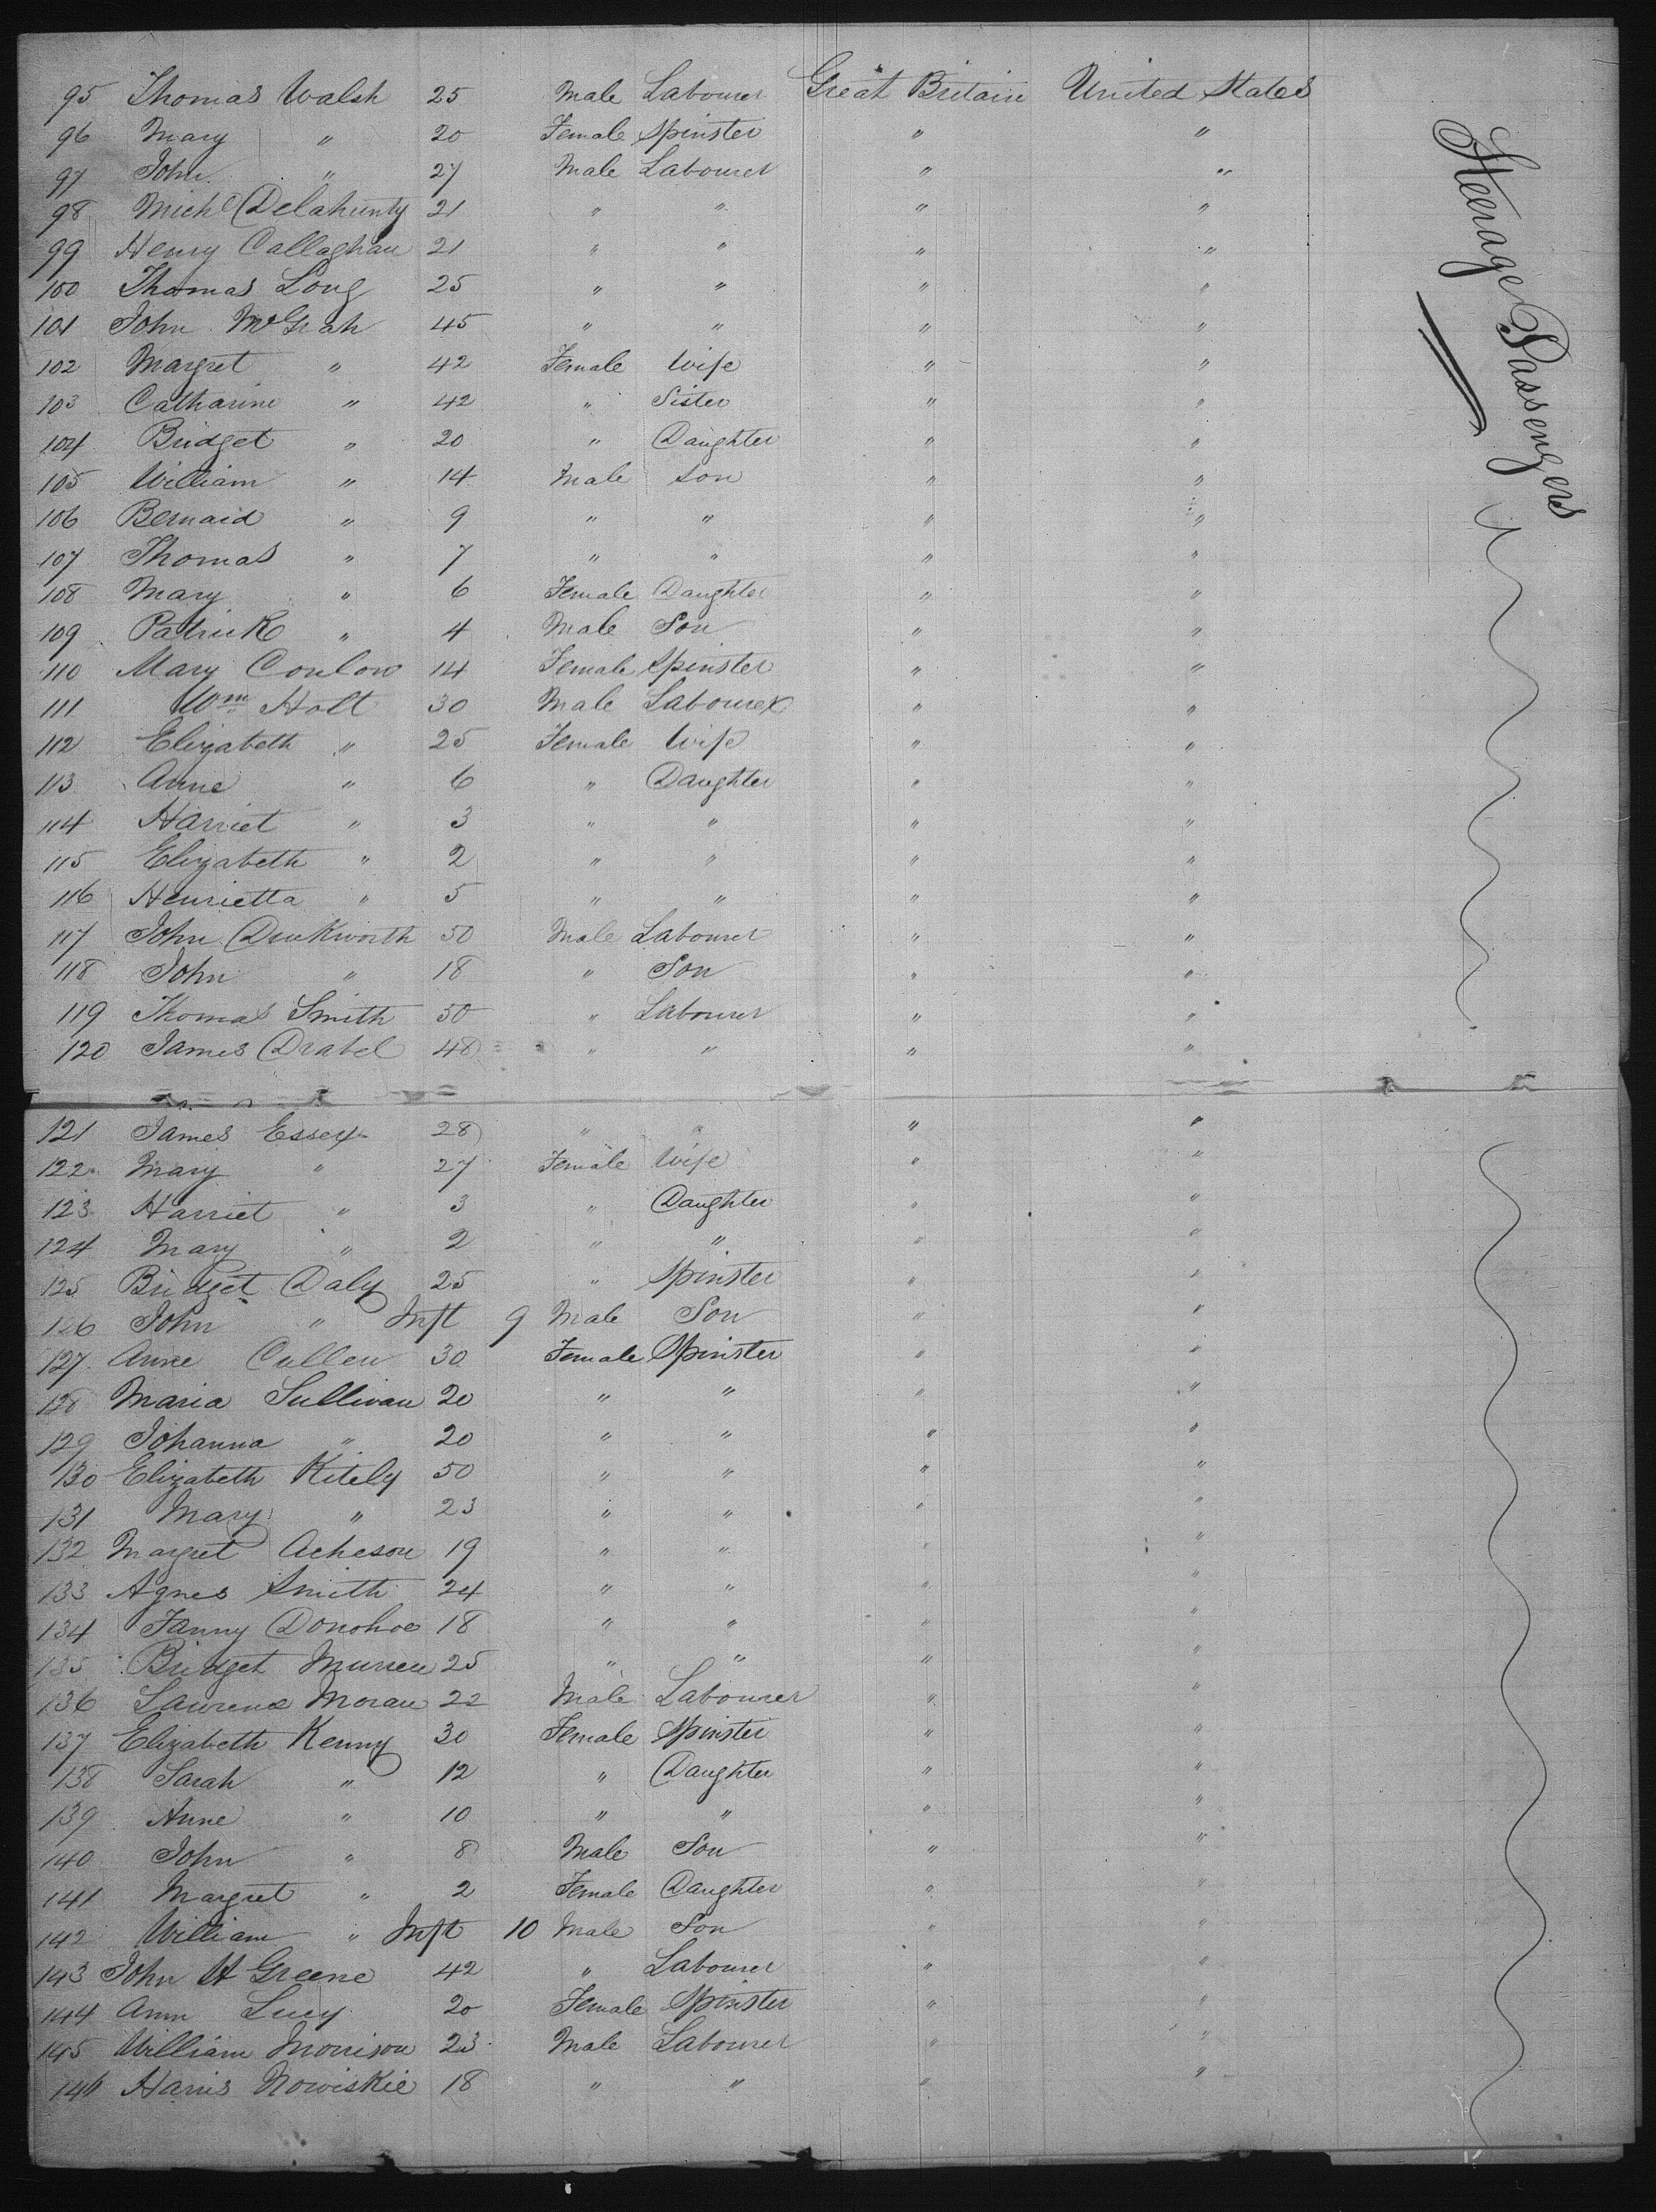 95 Thomas Walsh 25 Male Labourer Great Britain United States
96 Mary " 20 Female Spinster " "
97 John " 27 Male Labourer " "
98 Michl Delahunty 21 " " " "
99 Henry Callaghan 21 " " " "
100 Thomas Long 25 " " " "
101 John McGrah 45 " " " "
102 Margret " 42 Female Wife " "
103 Catharine " 42 " Sister " "
104 Bridget " 20 " Daughter " "
105 William " 14 Male Son " "
106 Bernard " 9 " " " "
107 Thomas " 7 " " " "
108 Mary " 6 Female Daughter " "
109 Patrick " 4 Male Son " "
110 Mary Conlow 14 Female Spinster " "
111 Wm Holt 30 Male Labourer " "
112 Elizabeth " 25 Female Wife " "
113 Anne " 6 " Daughter " "
114 Harriet " 3 " " " "
115 Elizabeth " 2 " " " "
116 Henrietta " 5 " " " "
117 John Duckworth 50 Male Labourer " "
118 John " 18 " Son " "
119 Thomas Smith 50 " Labourer " "
120 James Drabel 48 " " " "
121 James Essex 28 " " " "
122 Mary " 27 Female Wife " "
123 Harriet " 3 " Daughter " "
124 Mary " 2 " " " "
125 Bridget Daly 25 " Spinster " "
126 John " Inft 9 Male Son " "
127 Anne Cullen 30 Female Spinster " "
128 Maria Sullivan 20 " " " "
129 Johanna " 20 " " " "
130 Elizabeth Kitely 50 " " " "
131 Mary " 23 " " " "
132 Margret Acheson 19 " " " "
133 Agnes Smith 24 " " " "
134 Fanny Donohoe 18 " " " "
135 Bridget Murren 25 " " " "
136 Laurence Moran 22 Male Labourer " "
137 Elizabeth Kenny 30 Female Spinster " "
138 Sarah " 12 " Daughter " "
139 Anne " 10 " " " "
140 John " 8 Male Son " "
141 Margret " 2 Female Daughter " "
142 William " Inft 10 Male Son " "
143 John H Greene 42 " Labourer " "
144 Ann Lucy 20 Female Spinster " "
145 William Morrison 23 Male Labourer " "
146 Harris Nowiskie 18 " " " "
Steerage Passengers